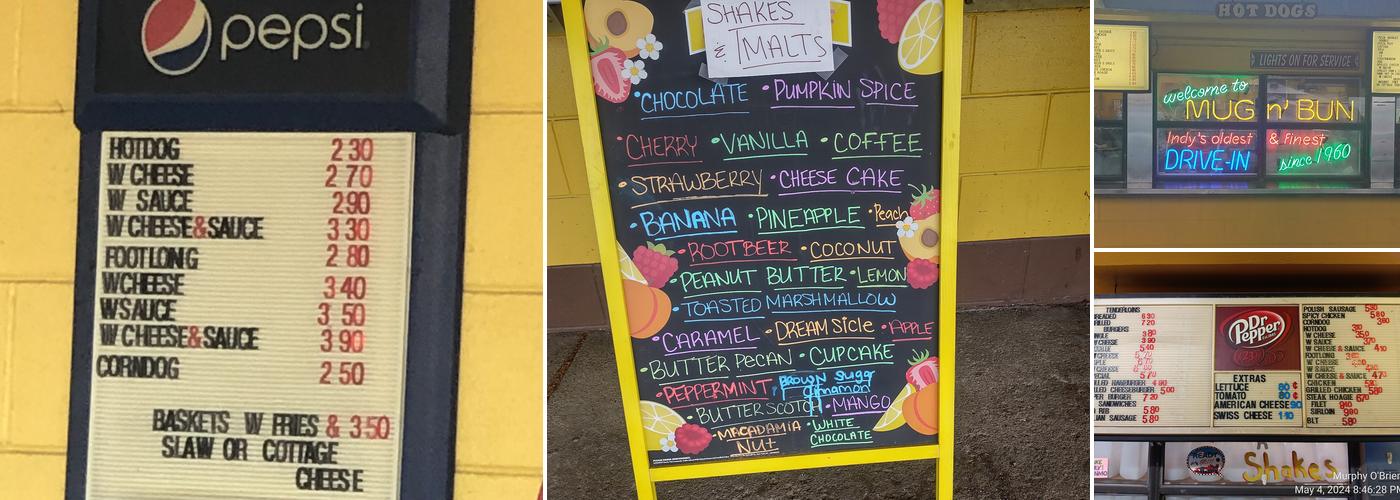 pepsi
HOTDOG 2 30
W CHEESE 2 70
W SAUCE 2 90
W CHEESE&SAUCE 3 30
FOOTLONG 2 80
WCHEESE 3 40
WSAUCE 3 50
W CHEESE&SAUCE 3 90
CORNDOG 2 50
BASKETS W FRIES & 3 50
SLAW OR COTTAGE
CHEESE
SHAKES
& MALTS
•CHOCOLATE •PUMPKIN SPICE
•CHERRY •VANILLA •COFFEE
•STRAWBERRY •CHEESE CAKE
•BANANA •PINEAPPLE •Peach
•ROOTBEER •COCONUT
•PEANUT BUTTER •LEMON
•TOASTED MARSHMALLOW
•CARAMEL •DREAMSICLE •APPLE
•BUTTER PECAN •CUPCAKE
•PEPPERMINT •Brown Sugar Cinnamon
•BUTTERSCOTCH •MANGO
•MACADAMIA NUT •WHITE CHOCOLATE
HOT DOGS
LIGHTS ON FOR SERVICE
welcome to
MUG n' BUN
Indy's oldest & finest
DRIVE-IN since 1960
TENDERLOINS
BURGERS
SANDWICHES
Dr Pepper
EXTRAS
LETTUCE 80 ¢
TOMATO 80 ¢
AMERICAN CHEESE 90
SWISS CHEESE 1 10
POLISH SAUSAGE
SPICY CHICKEN 5 80
CORNDOG
HOTDOG
W CHEESE
W SAUCE
W CHEESE & SAUCE
FOOTLONG
W CHEESE
W SAUCE
W CHEESE & SAUCE
CHICKEN
GRILLED CHICKEN
STEAK HOAGIE
FILET
SIRLOIN
BLT 5 80
Shakes
Murphy O'Brien
May 4, 2024 8:46:28 PM